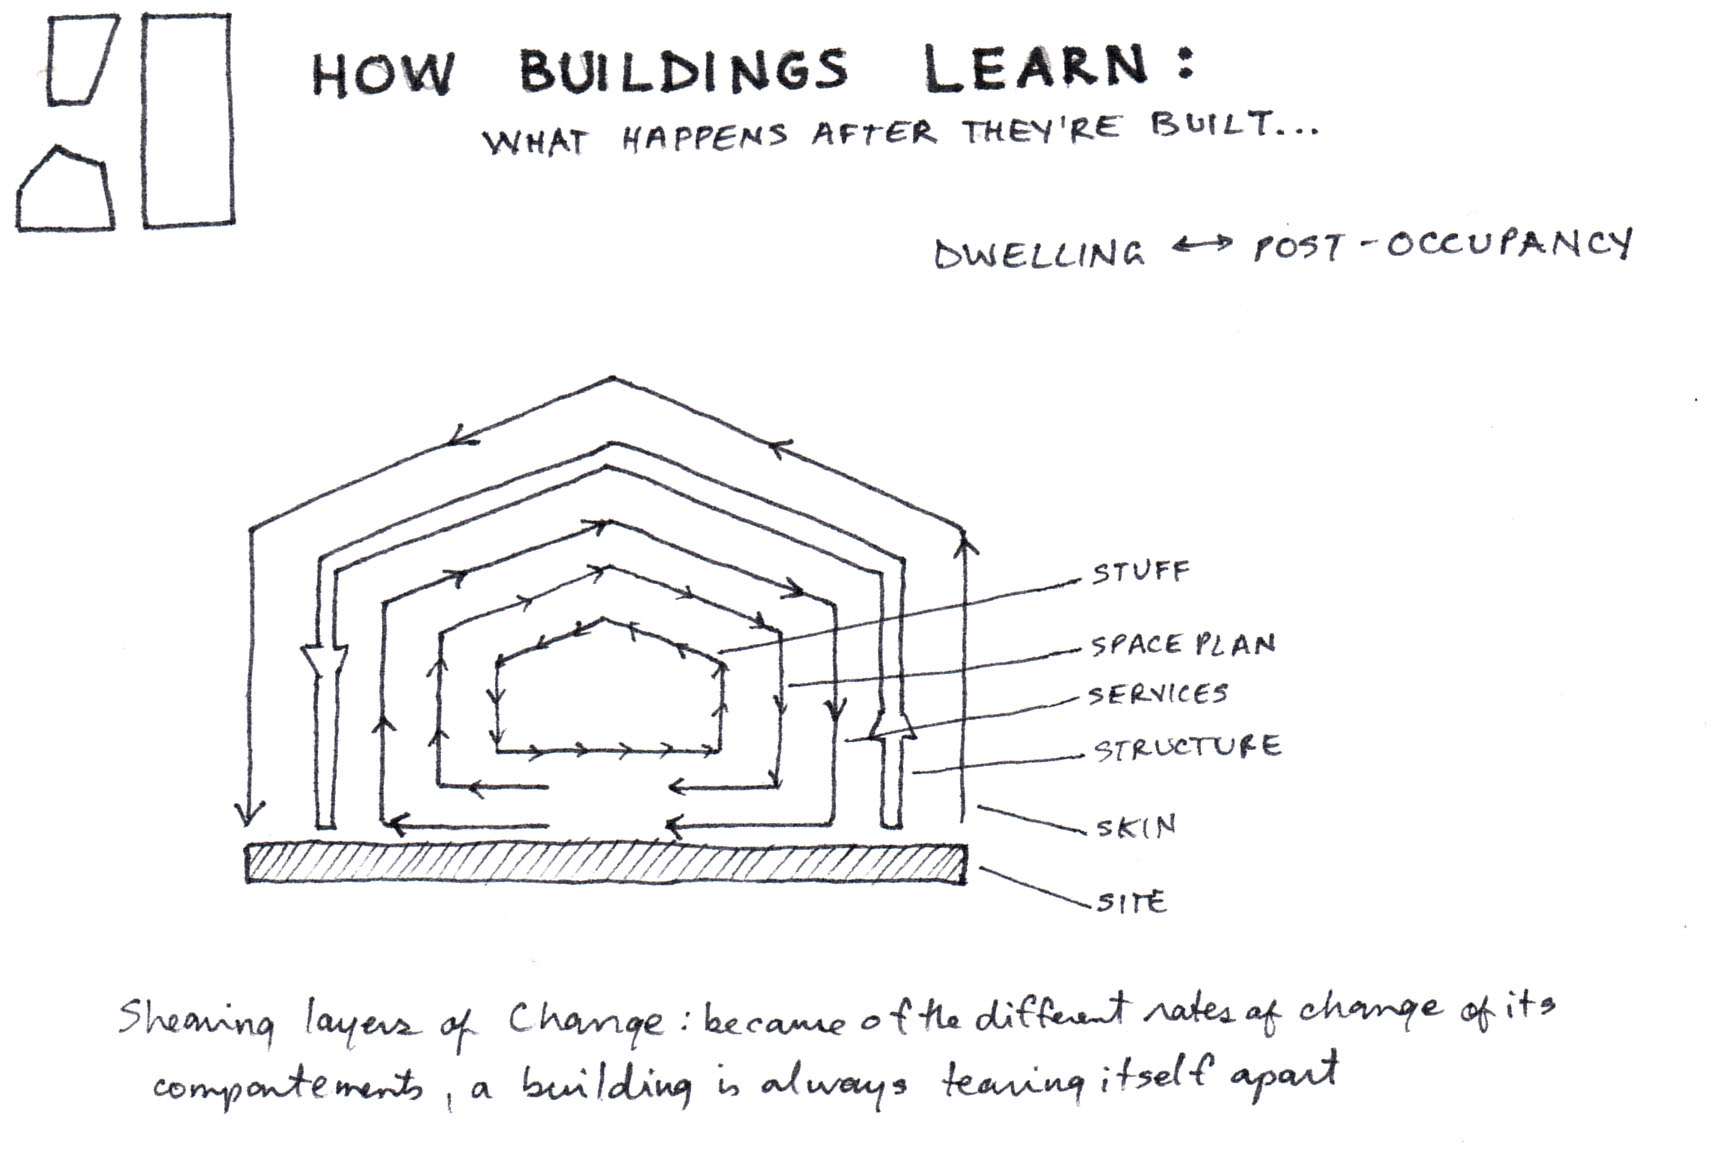 HOW BUILDINGS LEARN:
WHAT HAPPENS AFTER THEY'RE BUILT...
DWELLING ↔ POST-OCCUPANCY
STUFF
SPACE PLAN
SERVICES
STRUCTURE
SKIN
SITE
Shearing layers of Change: because of the different rates of change of its
compartements, a building is always tearing itself apart